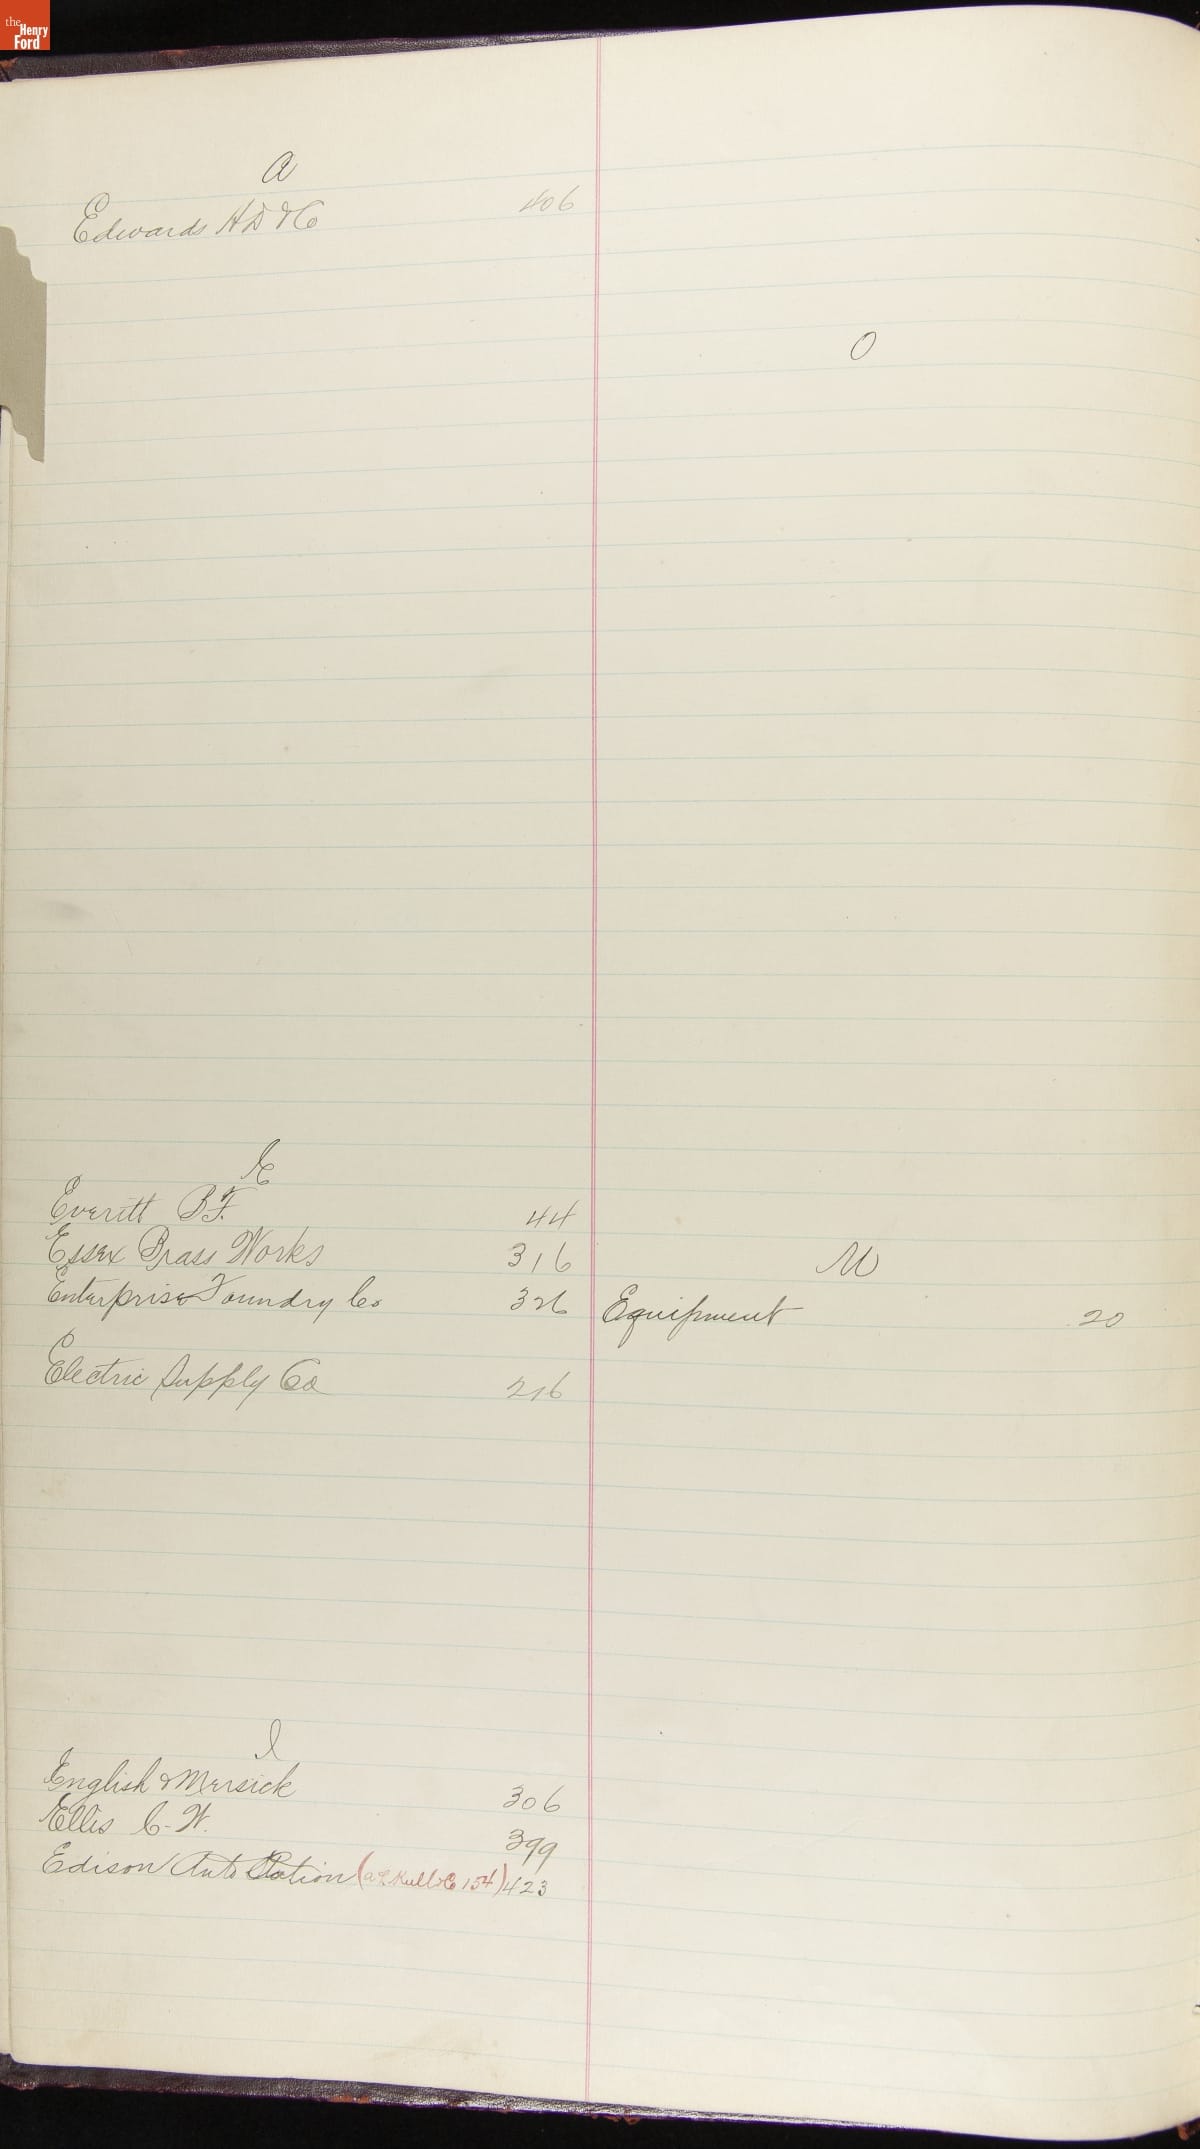 the Henry Ford
a
Edwards H D & Co 406
E
Everitt B F. 44
Essex Brass Works 316
Enterprise Foundry Co 326
Electric Supply Co 216
I
English & Mersick 306
Ellis C. W. 399
Edison Auto Station (A L Kull & Co 154) 423
O
M
Equipment 20